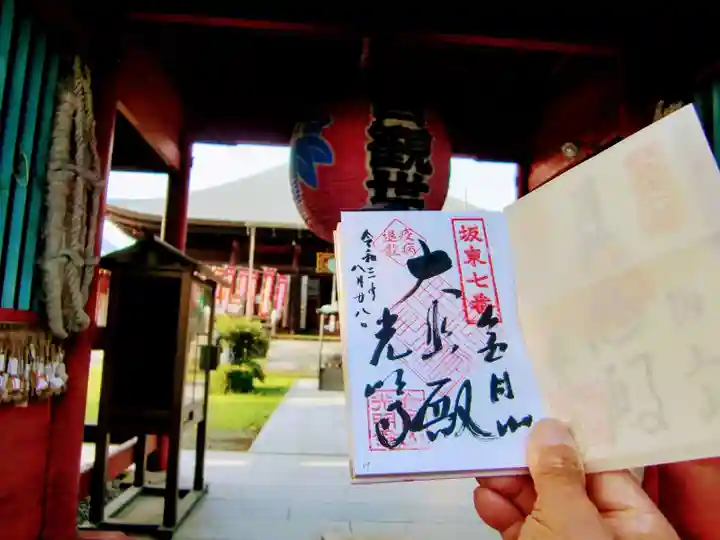 観世
坂東七番
疫病
退散
令和三年
八月廿八日
金目山
大悲殿
光明寺